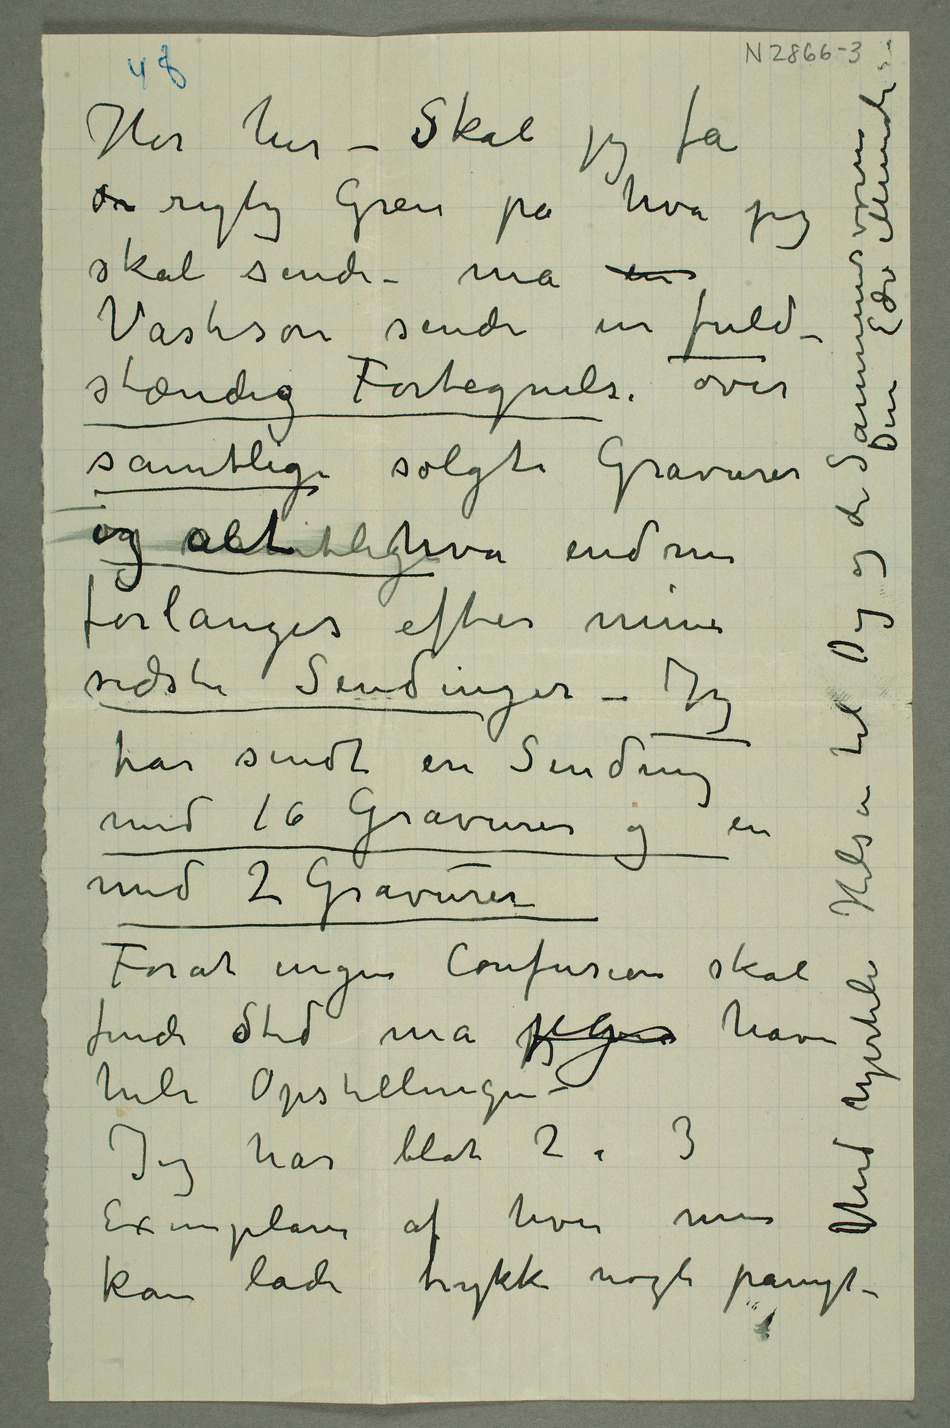 48
N 2866-3
Hør her – Skal jeg få
en rigtig Gren på hva jeg
skal sende – må en
Vasteson sende en fuld–
stændig Fortegnelse over
samtlige solgte Gravurer
og alt hva endnu
forlanges efter mine
sidste Sendinger – Jeg
har sendt en Sending
med 16 Gravurer og en
med 2 Gravurer
Forat ingen Confusion skal
finde Sted må jeg have
hele Opstillingen –
Jeg har blot 2 a 3
Exemplarer af hver men
kan lade trykke nogle pånyt –
Med hjertelig Hilsen til Dig og de Sammensvorne
Din Edv Munch